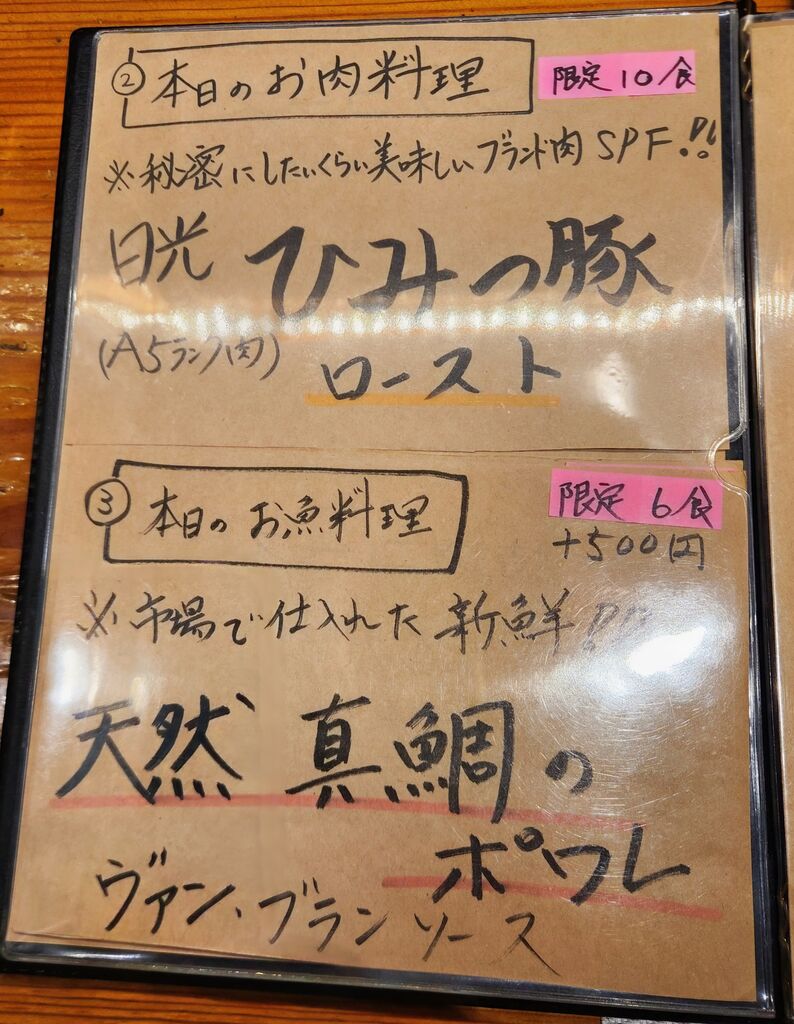 ② 本日のお肉料理 限定10食
※秘密にしたいくらい美味しいブランド肉 SPF!!
日光 ひみつ豚
(A5ランク肉) ロースト
③ 本日のお魚料理 限定 6食
+500円
※市場で仕入れた 新鮮!!
天然 真鯛の
ポワレ
ヴァン、ブランソース